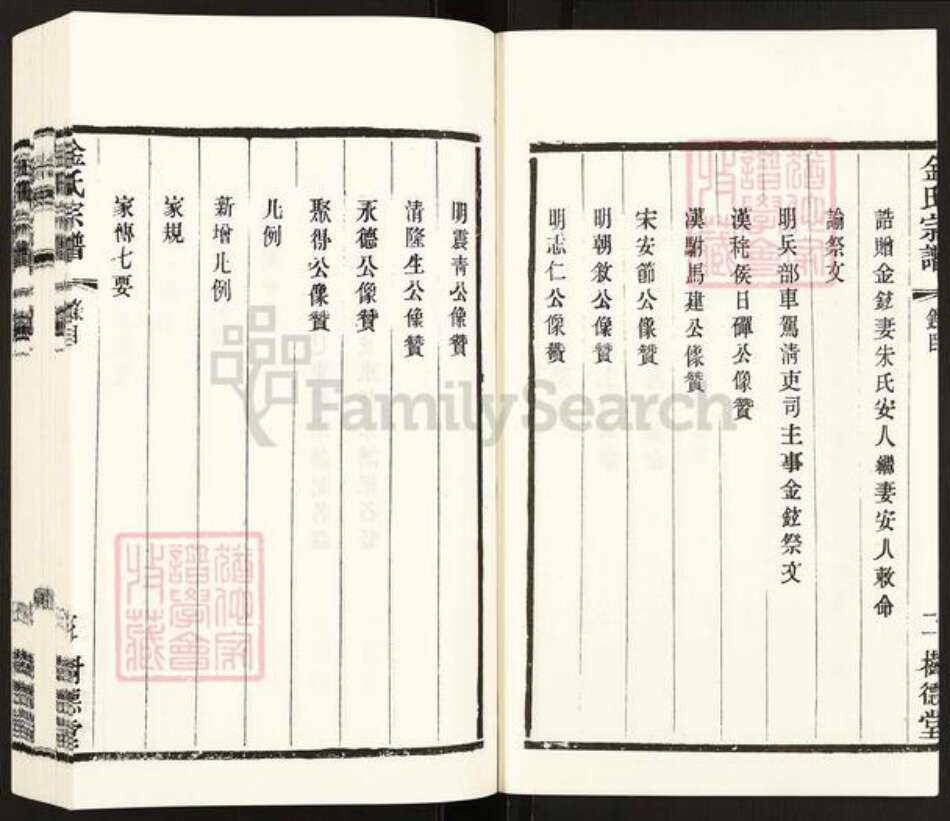 金氏宗譜
總目
二
樹德堂
誥贈金鉉妻朱氏安人繼妻安人敕命
諭祭文
明兵部車駕清吏司主事金鉉祭文
漢秺侯日磾公像贊
漢駙馬建公像贊
宋安節公像贊
明朝敘公像贊
明志仁公像贊
明震青公像贊
清隆生公像贊
永德公像贊
聚得公像贊
凡例
新增凡例
家規
家傳七要
金氏宗譜
總目
樹德堂
FamilySearch